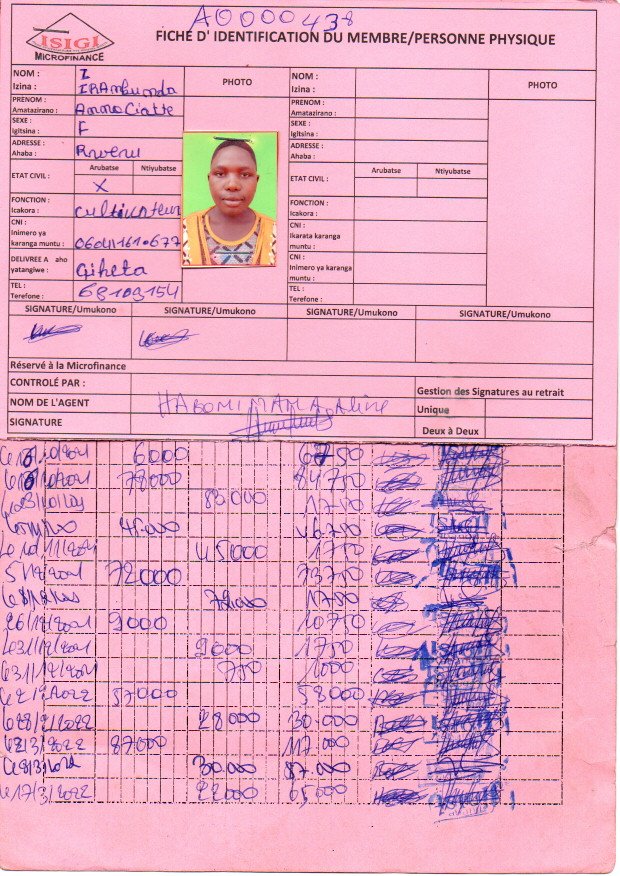 A0000438
ISIGI
MICROFINANCE
FICHE D' IDENTIFICATION DU MEMBRE/PERSONNE PHYSIQUE
NOM : I
Izina : IRAMbunda
PHOTO
NOM :
Izina :
PHOTO
PRENOM :
Amatazirano : AnnoCiatte
PRENOM :
Amatazirano :
SEXE :
Igitsina : F
SEXE :
Igitsina :
ADRESSE :
Ahaba : Rweru
ADRESSE :
Ahaba :
ETAT CIVIL :
Arubatse Ntiyubatse
X
ETAT CIVIL :
Arubatse Ntiyubatse
FONCTION :
Icakora : cultivateur
FONCTION :
Icakora :
CNI :
Inimero ya
karanga muntu :
CNI :
Ikarata karanga
muntu :
DELIVREE A aho
yatangiwe : Giheta
CNI :
Inimero ya karanga
muntu :
TEL :
Terefone : 68109154
TEL :
Terefone :
SIGNATURE/Umukono SIGNATURE/Umukono SIGNATURE/Umukono SIGNATURE/Umukono
Réservé à la Microfinance
CONTROLÉ PAR :
Gestion des Signatures au retrait
NOM DE L'AGENT HABOMIMANA Aline
Unique
SIGNATURE
Deux à Deux
6000 6750
78000 84750
83000 1750
45000 46750
45000 1750
72000 73750
1750
26/12/2021 9000 10750
9000 1750
750 1000
57000 58000
28000 30000
87000 117000
30000 87000
17/3/2022 22000 65000